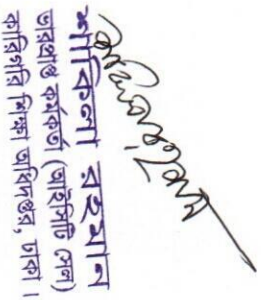 শাকিলা রহমান
ভারপ্রাপ্ত কর্মকর্তা (আইসিটি সেল)
কারিগরি শিক্ষা অধিদপ্তর, ঢাকা।